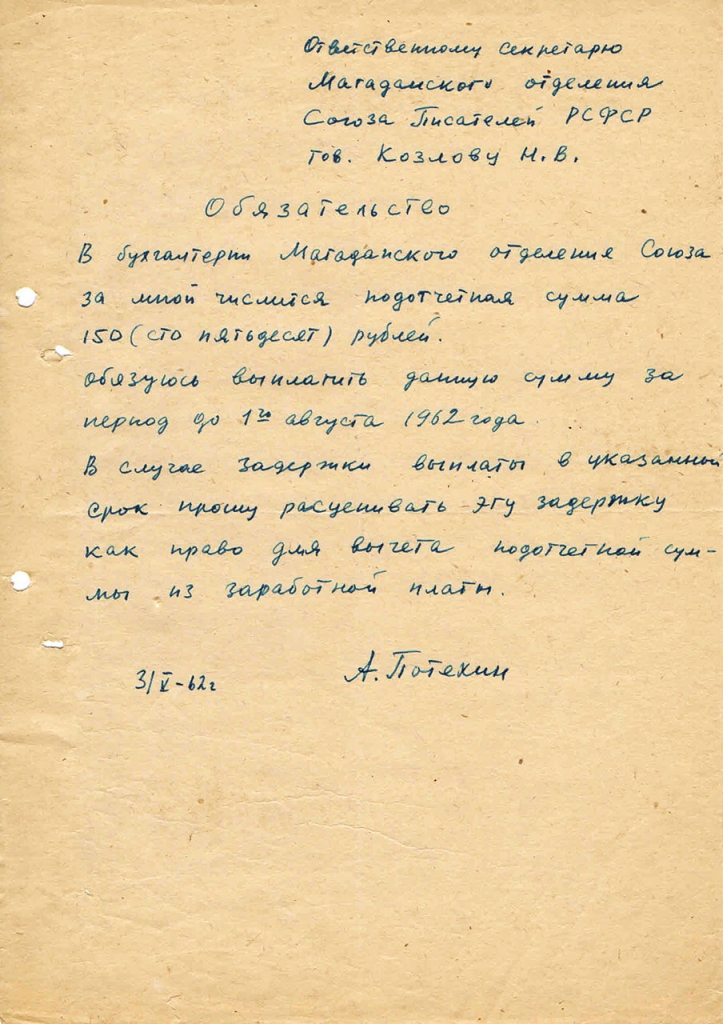 Ответственному секретарю
Магаданского отделения
Союза Писателей РСФСР
тов. Козлову Н.В.
Обязательство
В бухгалтерии Магаданского отделения Союза
за мной числится подотчетная сумма
150 (сто пятьдесят) рублей.
Обязуюсь выплатить данную сумму за
период до 1го августа 1962 года.
В случае задержки выплаты в указанный
срок прошу расценивать эту задержку
как право для вычета подотчетной сум-
мы из заработной платы.
3/V-62г А. Потехин